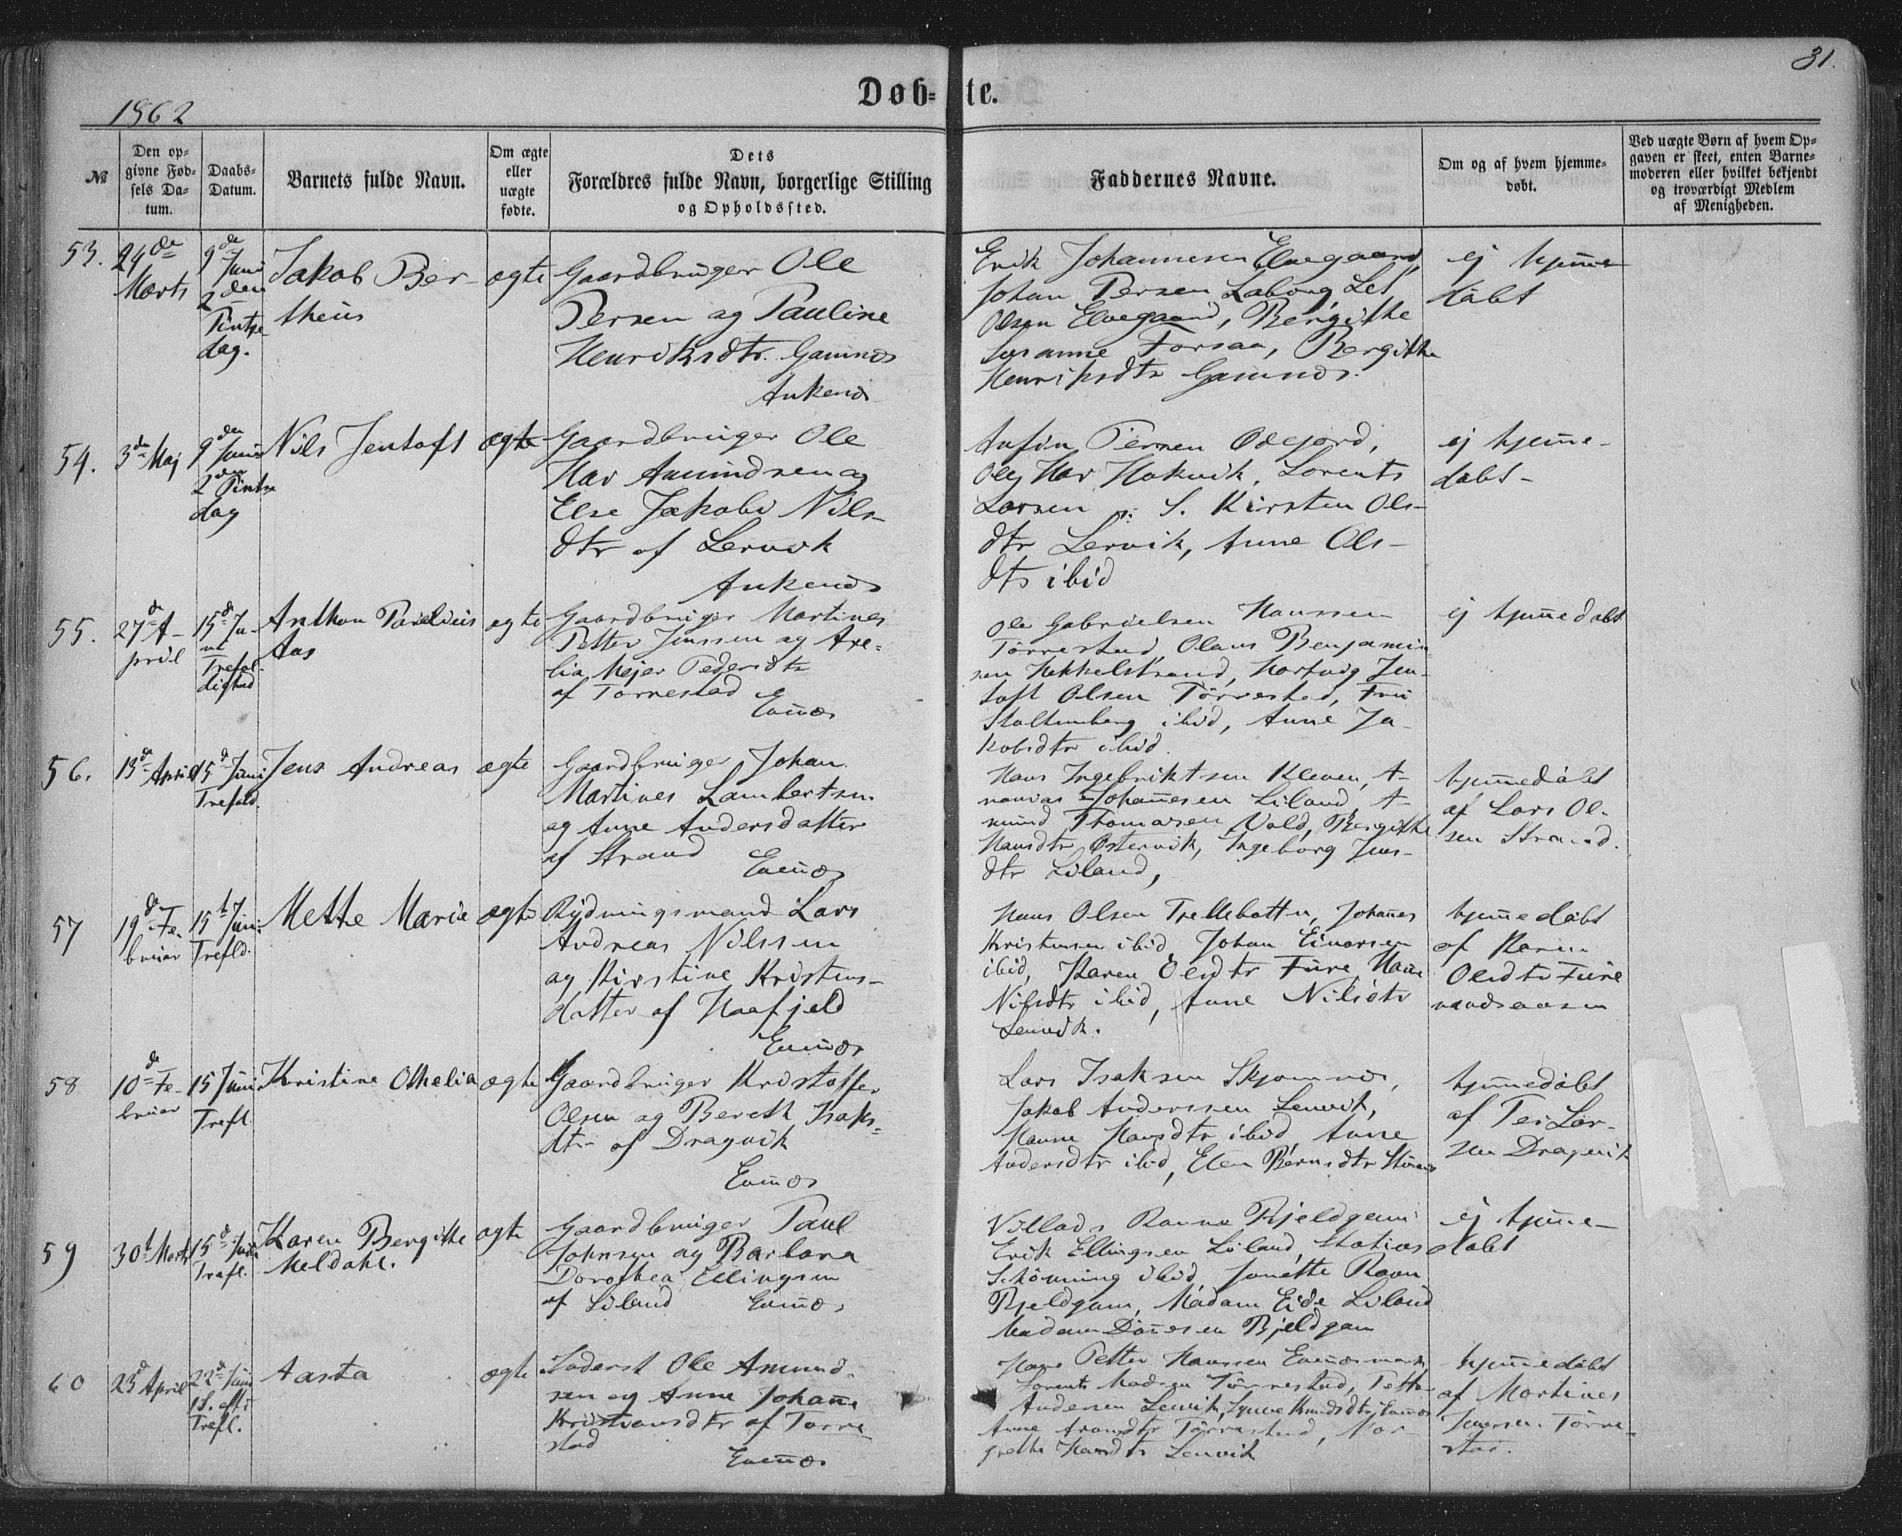 31.
Døb=te.
1862
№
Den op=
givne Fød=
sels Da=
tum.
Daabs=
Datum.
Barnets fulde Navn.
Om ægte
eller
uægte
fødte.
Dets
Forældres fulde Navn, borgerlige Stilling
og Opholdssted.
Faddernes Navne.
Om og af hvem hjemme=
døbt.
Ved uægte Børn af hvem Op=
gaven er skeet, enten Barne=
moderen eller hvilket bekjendt
og troværdigt Medlem
af Menigheden.
53.
24de
Marts
9de Juni
2den
Pintse
dag.
Jakob Ber-
theus
ægte
Gaardbruger Ole
Persen og Pauline
Henriksdtr. Gamnæs
Ankenæs
Erik Johannesen Elvegaard,
Johan Persen Laberg,
Olsen Elvegaard, Bergithe
Susanne Forsaa, Bergithe
Henriksdtr Gamnæs.
ej hjem̄e
døbt
54.
3de Maj
9den Juni
2den Pintse
dag
Nils Jentoft
ægte
Gaardbruger Ole
Har Amundsen og
Else Jakobi Nils-
dtr af Lervik
Ankenæs
Anfin Persen
Ole Har Hakvik, Lorents
Larsen S. Kirsten Ols-
dtr Lervik, Anne Ols-
dtr ibid
ej hjem̄e-
døbt-
55.
27de A-
pril
15de Ju-
ni
Trefol-
dighed
Anthon
Aas
ægte
Gaardbruger Martines
Petter Jenssen og Axe-
lia Mejer Pedersdtr
af Tørrestad
Evenæs
Ole Gabrielsen Hanssen
Tørrestad, Olaus Benjamin-
sen Hekkelstrand, Hartvig Jen-
toft Olsen Tørrestad, Fru
Stoltenberg ibid, Anne Ja-
kobsdtr ibid.
ej hjem̄edøbt
56.
13de April
15de Juni
Trefold.
Jens Andreas
ægte
Gaardbruger Johan
Martines Lambertsen
og Anne Andersdatter
af Strand
Evenæs
Hans Ingebriktsen Kleven, A-
Johan̄esen Liland, A-
mund Thomasen Vold, Bergithe
Hansdtr Østervik, Ingeborg Jens-
dtr Liland,
hjem̄edøbt
af Lars Ol-
sen Strand.
57
19de Fe-
bruar
15t Juni
Trefld.
Mette Marie
ægte
Rydningsmand Lars
Andreas Nilssen
og Kirstine Kristens-
datter af Haafjeld
Evenæs
Hans Olsen Trellebotten, Johan̄es
Kristensen ibid, Johan Einarsen
ibid, Karen Olsdtr Fure, Han̄e
Nilsdtr ibid, Anne Nilsdtr
Lenvik.
hjem̄edøbt
af Karen
Olsdtr Fure
58
10de Fe-
bruar
15 Juni
Trefl.
Kristine Othelia
ægte
Gaardbruger Kristoffer
Olsen og Bereth Isaks-
dtr af Dragvik
Evenæs
Lars Isaksen Skjomnæs,
Jakob Anderssen Lenvik,
Hanne Hansdtr ibid, Anne
Andersdtr ibid, Elen Berntsdtr
hjem̄edøbt
af Lar-
sen Dragvik
59
30t Marts
15de Juni
Trefl.
Karen Bergithe
Meldahl.
ægte
Gaardbruger Paul
Johnsen og Barbara
Dorothea Ellingsen
af Liland
Evenæs
Villads Bjeldgam
Erik Ellingsen Liland,
Schønning ibid, Janette Ravn
Bjeldgam, Madam Eide Liland
Madam Bjeldgam
ej hjem̄e-
døbt
60
23de April
22de Juni
1S. efter
Trefl.
Aasta
ægte
Inderst Ole Amund-
sen og Anne Johan̄e
Kristiansdtr af Tørre-
stad
Evenæs
Hans Petter Hanssen Evenæsmark
Lorents Madsen Tørrestad, Petter
Andersen Lenvik, Knudsdtr Evenæs
Anne Tørrestad, Mar-
grethe Hansdtr Lenvik
hjem̄edøbt
af Martines
Jenssen Tørre-
stad.